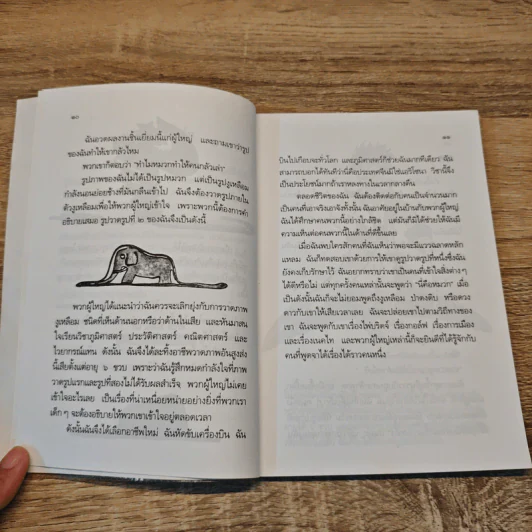 ๑๐
ฉันอวดผลงานชิ้นเยี่ยมนี้แก่ผู้ใหญ่ และถามเขาว่ารูป
ของฉันทำให้เขากลัวไหม
พวกเขาก็ตอบว่า "ทำไมหมวกทำให้คนกลัวเล่า"
รูปภาพของฉันไม่ได้เป็นรูปหมวก แต่เป็นรูปงูเหลือม
กำลังนอนย่อยช้างที่มันกลืนเข้าไป ฉันจึงต้องวาดรูปภายใน
ตัวงูเหลือมเพื่อให้พวกผู้ใหญ่เข้าใจ เพราะพวกนี้ต้องการคำ
อธิบายเสมอ รูปวาดรูปที่ ๒ ของฉันจึงเป็นดังนี้
พวกผู้ใหญ่ได้แนะนำว่าฉันควรจะเลิกยุ่งกับการวาดภาพ
งูเหลือม ชนิดที่เห็นด้านนอกหรือว่าด้านในเสีย และหันมาสน
ใจเรียนวิชาภูมิศาสตร์ ประวัติศาสตร์ คณิตศาสตร์ และ
ไวยากรณ์แทน ดังนั้น ฉันจึงได้ละทิ้งอาชีพวาดภาพอันสูงส่ง
นี้เสียตั้งแต่อายุ ๖ ขวบ เพราะว่าฉันรู้สึกหมดกำลังใจที่ภาพ
วาดรูปแรกและรูปที่สองไม่ได้รับผลสำเร็จ พวกผู้ใหญ่ไม่เคย
เข้าใจอะไรเลย เป็นเรื่องที่น่าเหนื่อยหน่ายอย่างยิ่งที่พวกเรา
เด็กๆ จะต้องอธิบายให้พวกเขาเข้าใจอยู่ตลอดเวลา
ดังนั้นฉันจึงได้เลือกอาชีพใหม่ ฉันหัดขับเครื่องบิน ฉัน
๑๑
บินไปเกือบจะทั่วโลก และภูมิศาสตร์ก็ช่วยฉันมากทีเดียว ฉัน
สามารถบอกได้ทันทีว่านี่คือประเทศจีนนี่มิใช่แอริโซนา วิชานี้จึง
เป็นประโยชน์มากถ้าเราหลงทางในเวลากลางคืน
ตลอดชีวิตของฉัน ฉันต้องติดต่อกับคนเป็นจำนวนมาก
เป็นคนที่เอาจริงเอาจังทั้งนั้น ฉันอาศัยอยู่ในบ้านกับพวกผู้ใหญ่
ฉันได้ศึกษาคนพวกนี้อย่างใกล้ชิด แต่มันก็มิได้ช่วยให้ฉันมี
ความเห็นต่อคนพวกนี้ในด้านที่ดีขึ้นเลย
เมื่อฉันพบใครสักคนที่ฉันเห็นว่าพอจะมีแววฉลาดหลัก
แหลม ฉันก็ทดสอบเขาด้วยการให้เขาดูรูปวาดรูปที่หนึ่งซึ่งฉัน
ยังคงเก็บรักษาไว้ ฉันอยากทราบว่าเขาเป็นคนที่เข้าใจสิ่งต่างๆ
ได้ดีหรือไม่ แต่ทุกครั้งคนเหล่านั้นจะพูดว่า "นี่คือหมวก" เมื่อ
เป็นดังนั้นฉันก็จะไม่ยอมพูดถึงงูเหลือม ป่าดงดิบ หรือดวง
ดาวกับเขาให้เสียเวลาเลย ฉันจะปล่อยเขาไปตามวิถีทางของ
เขา ฉันจะพูดกับเขาเรื่องไพ่บริดจ์ เรื่องกอล์ฟ เรื่องการเมือง
และเรื่องเนคไท และพวกผู้ใหญ่เหล่านี้ก็จะยินดีที่ได้รู้จักกับ
คนที่พูดจาได้เรื่องได้ราวคนหนึ่ง